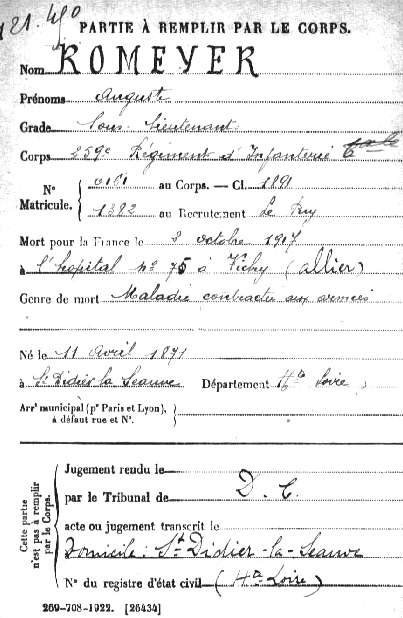 121.490
PARTIE À REMPLIR PAR LE CORPS.
Nom ROMEYER
Prénoms Auguste
Grade Sous Lieutenant
Corps 259e Régiment d'Infanterie
N° Matricule. { 0161 au Corps. — Cl. 1891
1392 au Recrutement Le Puy
Mort pour la France le 3 octobre 1917
à l'hopital n° 75 à Vichy (allier)
Genre de mort Maladie contractée aux armées
Né le 11 Avril 1871
à St Didier la Seauve Département Hte Loire
Arrt municipal (pr Paris et Lyon), à défaut rue et N°. }
Cette partie n'est pas à remplir par le Corps.
Jugement rendu le
par le Tribunal de D. C.
acte ou jugement transcrit le
Domicile: St Didier-la-Seauve
N° du registre d'état civil (Hte Loire)
269-708-1922. [26434]